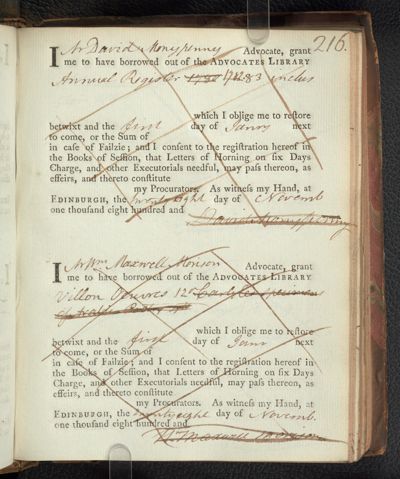 216.
I Mr David Monypenny Advocate, grant
me to have borrowed out of the ADVOCATES LIBRARY
Annual Register 1782 & 83 inclus
which I oblige me to reſtore
betwixt and the first day of Janry next
to come, or the Sum of
in caſe of Failzie; and I conſent to the regiſtration hereof in
the Books of Seſſion, that Letters of Horning on ſix Days
Charge, and other Executorials needful, may paſs thereon, as
effeirs, and thereto conſtitute
my Procurators. As witneſs my Hand, at
EDINBURGH, the twenty eight day of Novemb
one thouſand eight hundred and
David Monypenny
I Mr Wm Maxwell Morison Advocate, grant
me to have borrowed out of the ADVOCATES LIBRARY
Villon Oeuvres 12o Carlyles Specimens
of Arabic Poetry
which I oblige me to reſtore
betwixt and the first day of Janr next
to come, or the Sum of
in caſe of Failzie; and I conſent to the regiſtration hereof in
the Books of Seſſion, that Letters of Horning on ſix Days
Charge, and other Executorials needful, may paſs thereon, as
effeirs, and thereto conſtitute
my Procurators. As witneſs my Hand, at
EDINBURGH, the twenty eight day of Novemb.
one thouſand eight hundred and
W Maxwell Morison